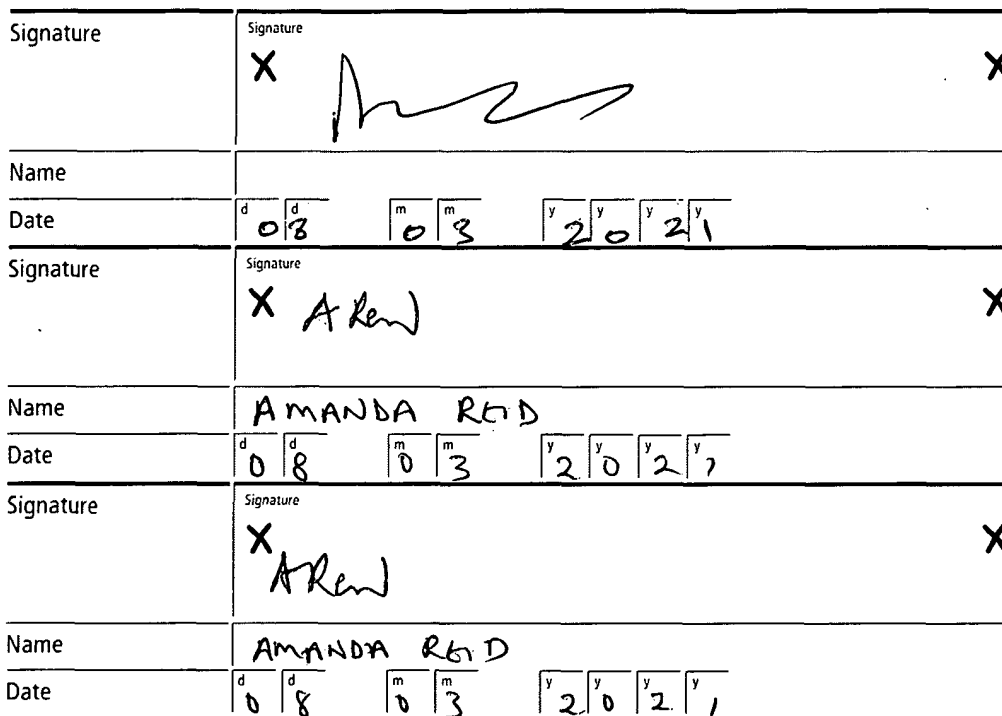 Signature
Signature
X X
Name
Date
d 0 d 8 m 0 m 3 y 2 y 0 y 2 y 1
Signature
Signature
X A Reid X
Name AMANDA REID
Date
d 0 d 8 m 0 m 3 y 2 y 0 y 2 y 1
Signature
Signature
X A Reid X
Name AMANDA REID
Date
d 0 d 8 m 0 m 3 y 2 y 0 y 2 y 1